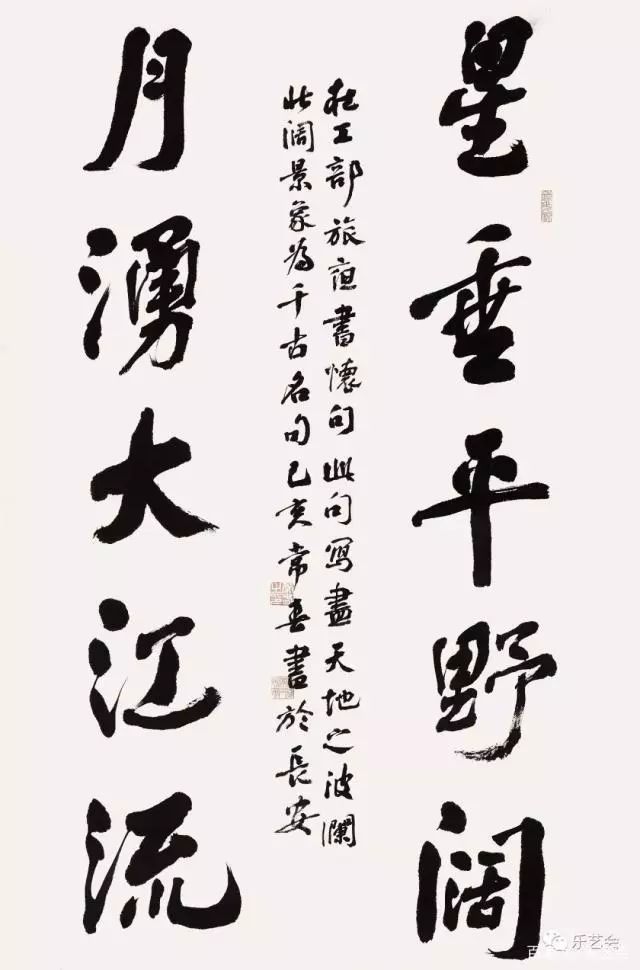 星垂平野阔
月湧大江流
杜工部旅夜書懷句此句寫盡天地之波瀾
此阔景象為千古名句己亥常春書於長安
乐艺会